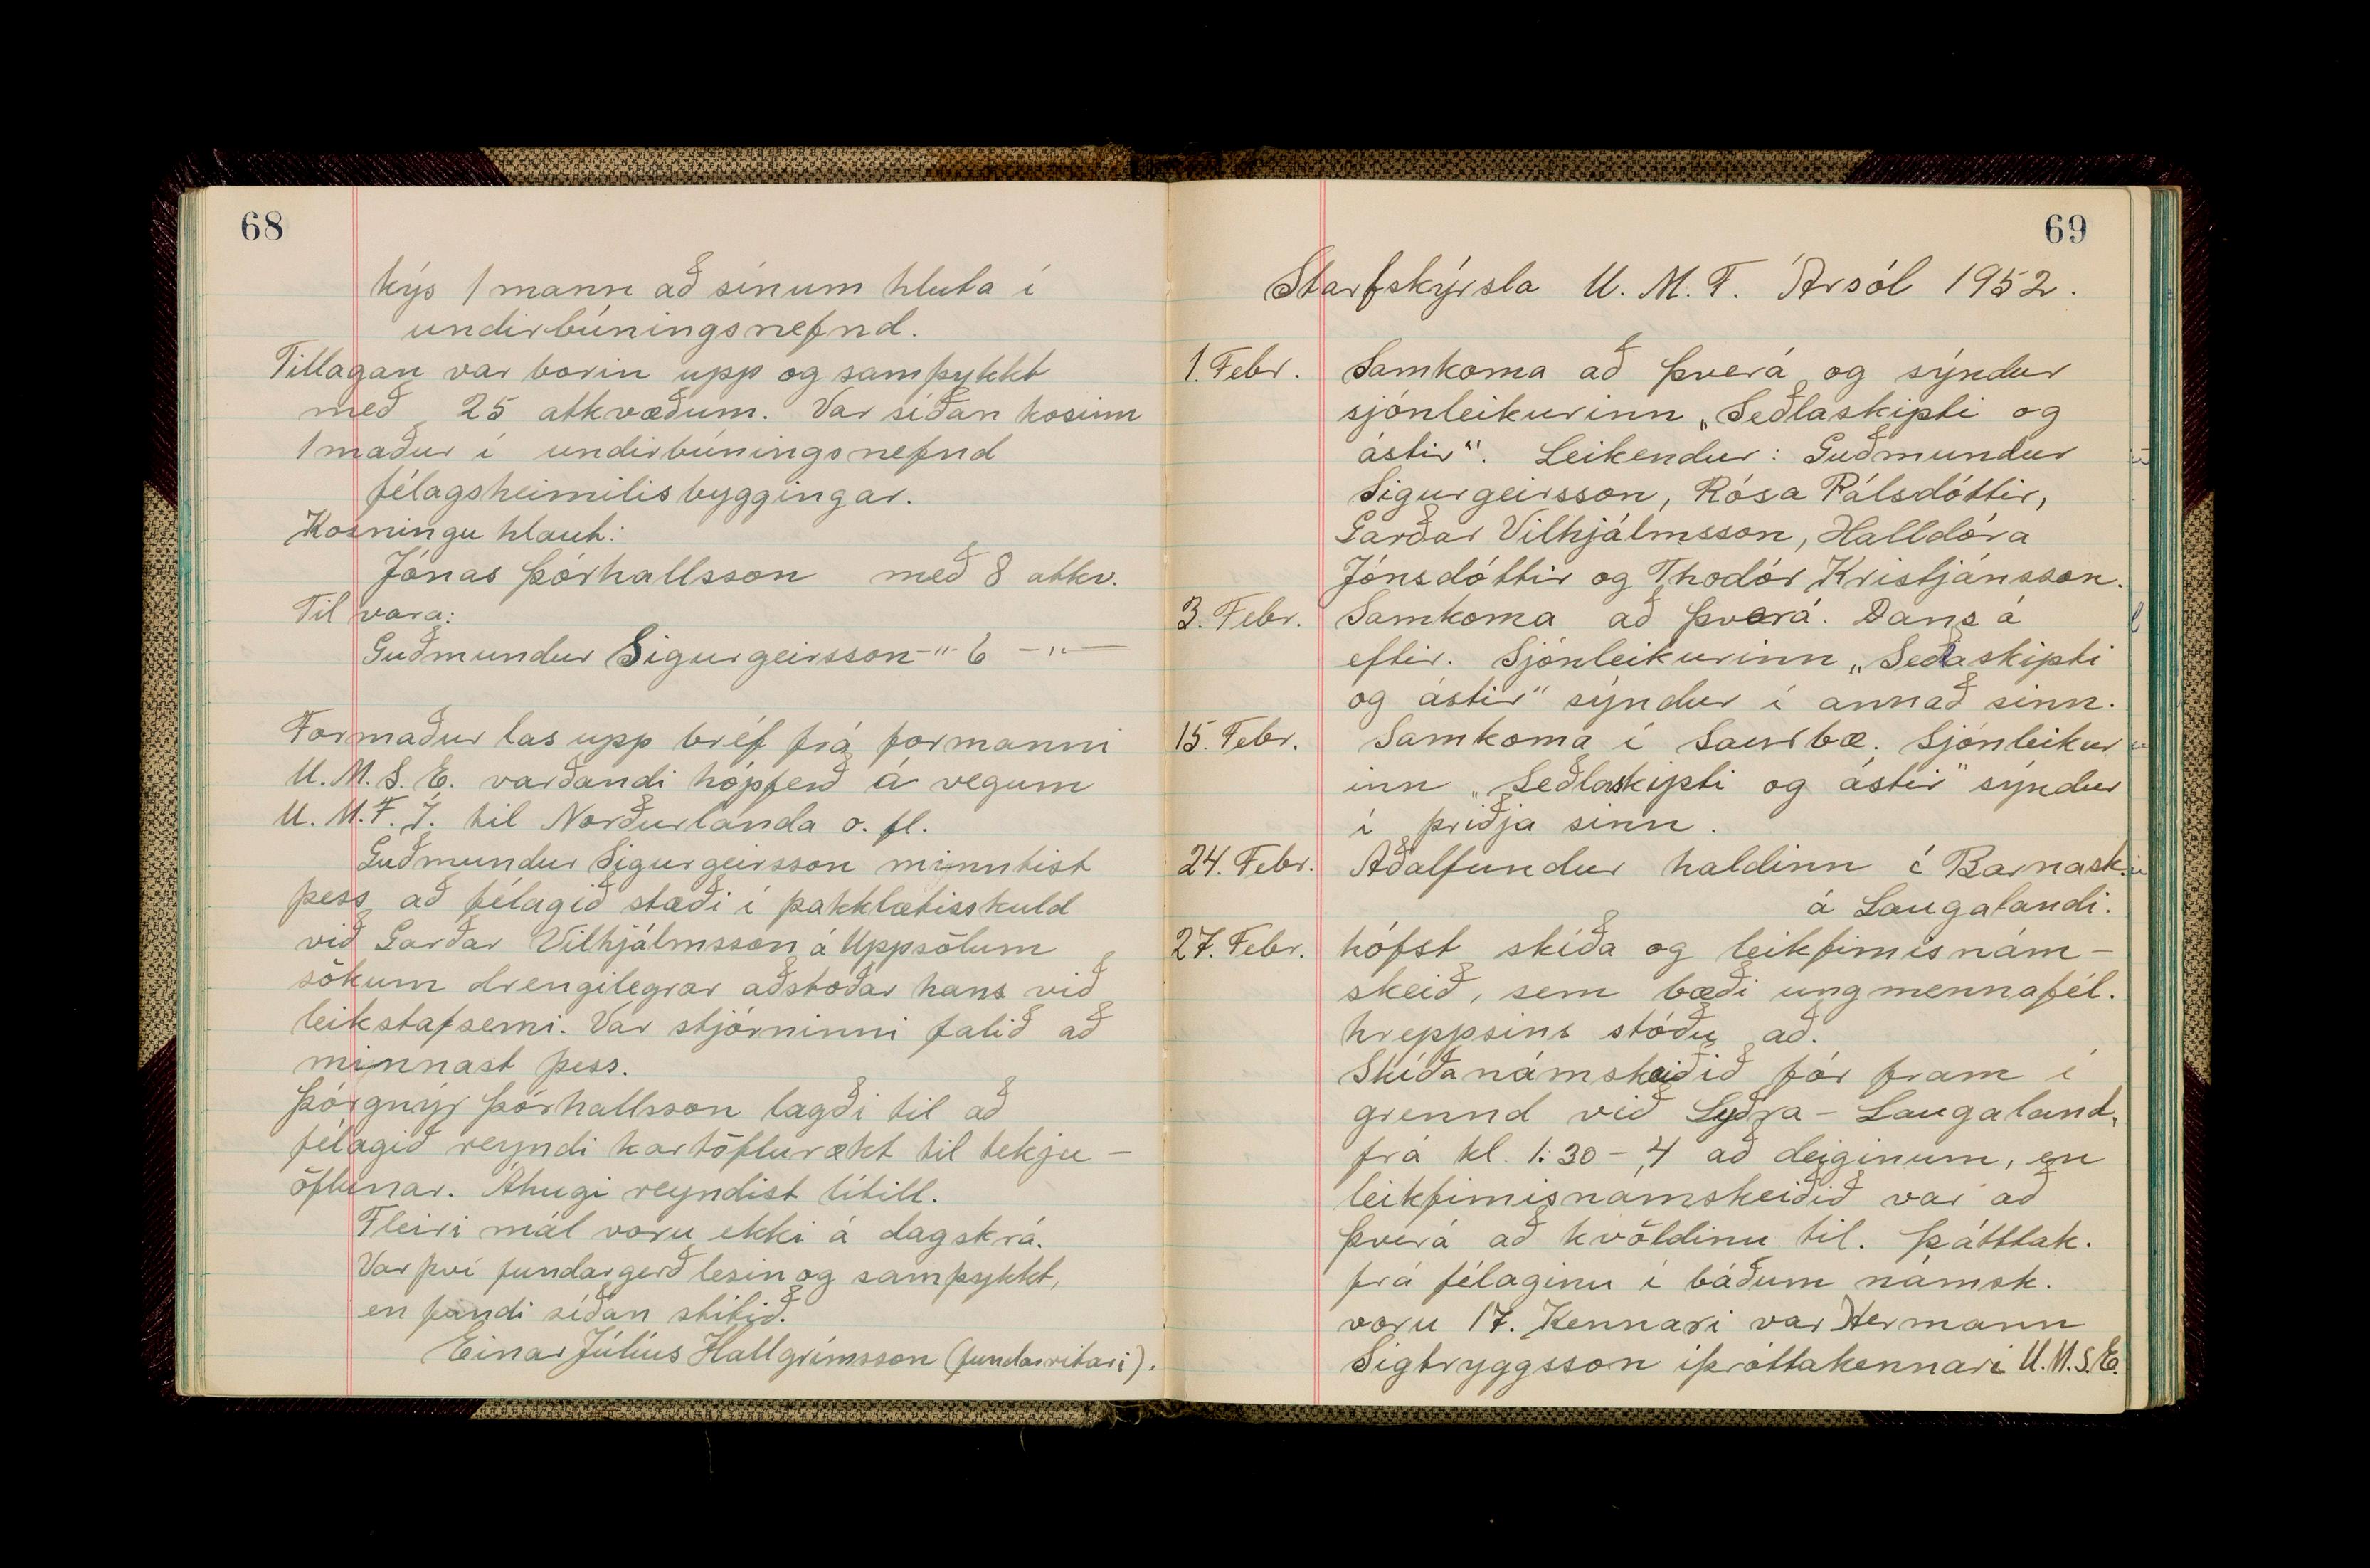 68
kýs 1 mann að sínum hluta í
undirbúningsnefnd.
Tillagan var borin upp og samþykkt
með 25 atkvæðum. Var síðan kosinn
1 maður í undirbúningsnefnd
félagsheimilisbyggingar.
Kosningu hlaut:
Jónas Þórhallsson með 8 atkv.
Til vara:
Guðmundur Sigurgeirsson -"- 6 -"-
Formaður las upp bréf frá formanni
U.M.S.E. varðandi hópferð á vegum
U.M.F.Í. til Norðurlanda o. fl.
Guðmundur Sigurgeirsson minntist
þess að félagið stæði í þakklætisskuld
við Garðar Vilhjálmsson á Uppsölum
sökum drengilegrar aðstoðar hans við
leikstafsemi. Var stjórninni falið að
minnast þess.
Þórgnýr Þórhallsson lagði til að
félagið reyndi kartöflurækt til tekju-
öflunar. Áhugi reyndist lítill.
Fleiri mál voru ekki á dagskrá.
Var því fundargerð lesin og samþykkt,
en fundi síðan slitið.
Einar Júlíus Hallgrímsson (fundarritari).
69
Starfskýrsla U. M. F. Ársól 1952.
1. Febr. Samkoma að Þverá og sýndur
sjónleikurinn „Seðlaskipti og
ástir“. Leikendur: Guðmundur
Sigurgeirsson, Rósa Pálsdóttir,
Garðar Vilhjálmsson, Halldóra
Jónsdóttir og Thodór Kristjánsson.
3. Febr. Samkoma að Þverá. Dans á
eftir. Sjónleikurinn „Seðlaskipti
og ástir“ sýndur í annað sinn.
15. Febr. Samkoma í Saurbæ. Sjónleikur
inn „Seðlaskipti og ástir“ sýndur
í þriðja sinn.
24. Febr. Aðalfundur haldinn í Barnask.
á Laugalandi.
27. Febr. hófst skíða og leikfimisnám-
skeið, sem bæði ungmennafél.
hreppsins stóðu að.
Skíðanámskeiðið fór fram í
grennd við Syðra-Laugaland,
frá kl. 1:30-4 að deiginum, en
leikfimisnámskeiðið var að
Þverá að kvöldinu til. Þátttak.
frá félaginu í báðum námsk.
voru 17. Kennari var Hermann
Sigtryggsson íþróttakennari U.M.S.E.